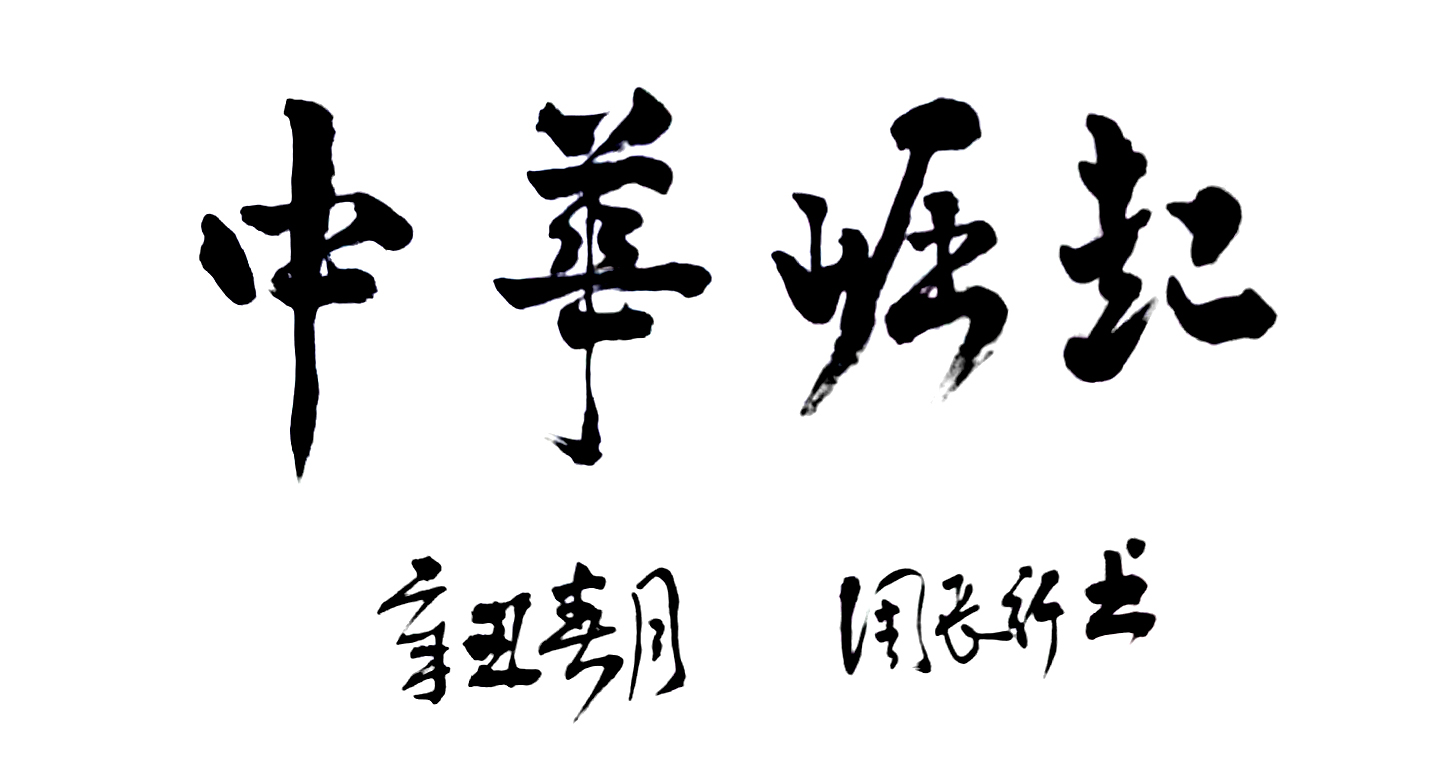 中華崛起
辛丑春月 周長行书